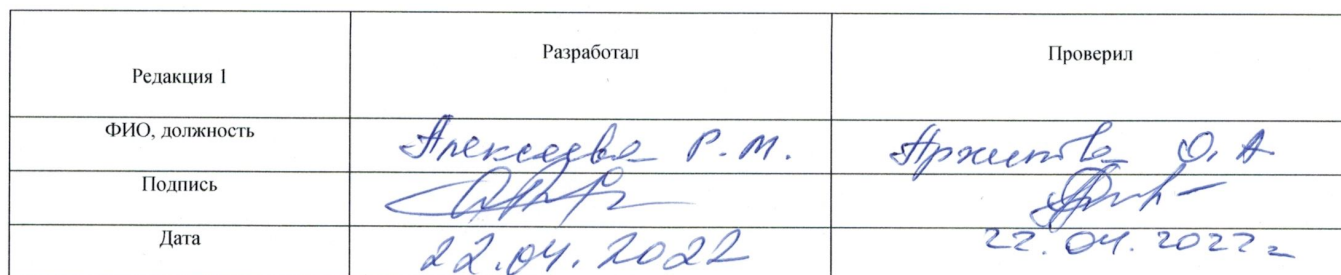 Редакция 1 Разработал Проверил
ФИО, должность Алексеева Р.М. Архипова О.А
Подпись
Дата 22.04.2022 22.04.2022г